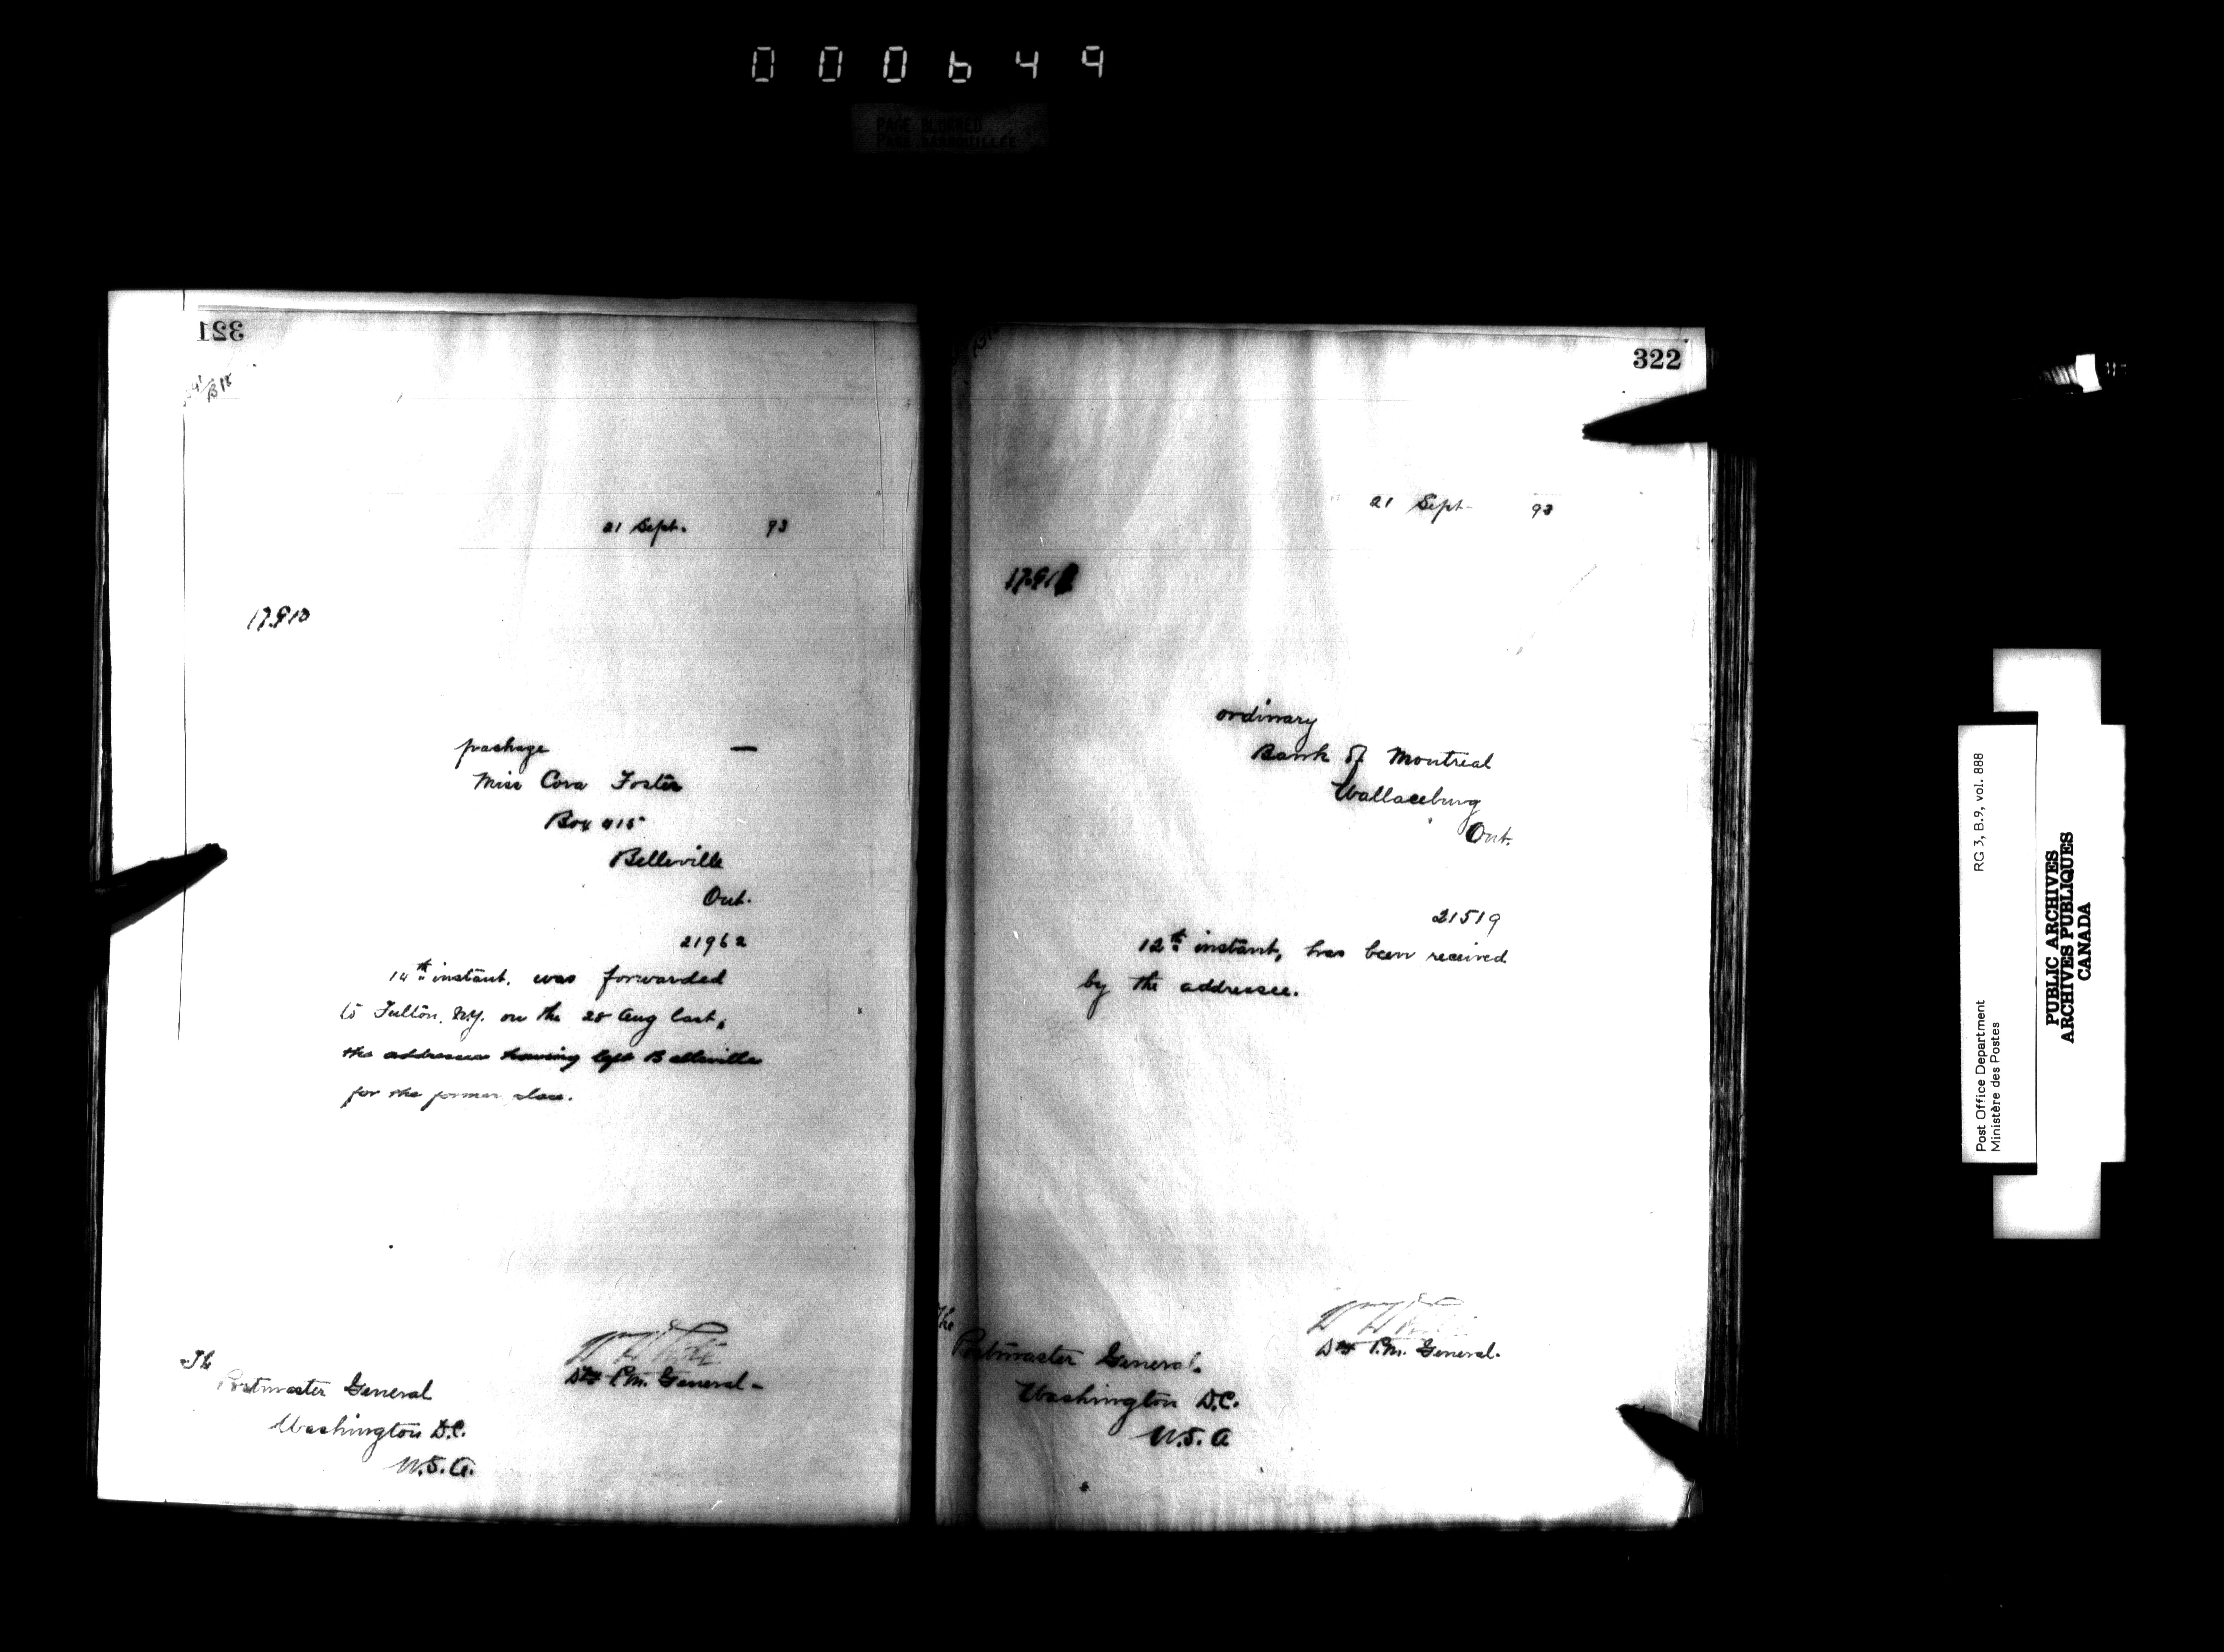 000649
PAGE BLURRED
PAGE BARBOUILLÉE
321
21 Sept. 93
17.910
package —
Miss Cora Foster
Box 415
Belleville
Ont.
21962
14th instant, was forwarded
to Fulton, N.Y. on the 28 Aug last,
the addressee having left Belleville
for the former place.
Dty P.M. General -
The
Postmaster General
Washington D.C.
U.S.A.
322
21 Sept 93
ordinary
Bank of Montreal
Wallaceburg
Ont.
21519
12th instant, has been received
by the addressee.
Dty P.M. General.
The
Postmaster General.
Washington D.C.
U.S.A
Post Office Department RG 3, B.9, vol. 888
Ministère des Postes
PUBLIC ARCHIVES
ARCHIVES PUBLIQUES
CANADA